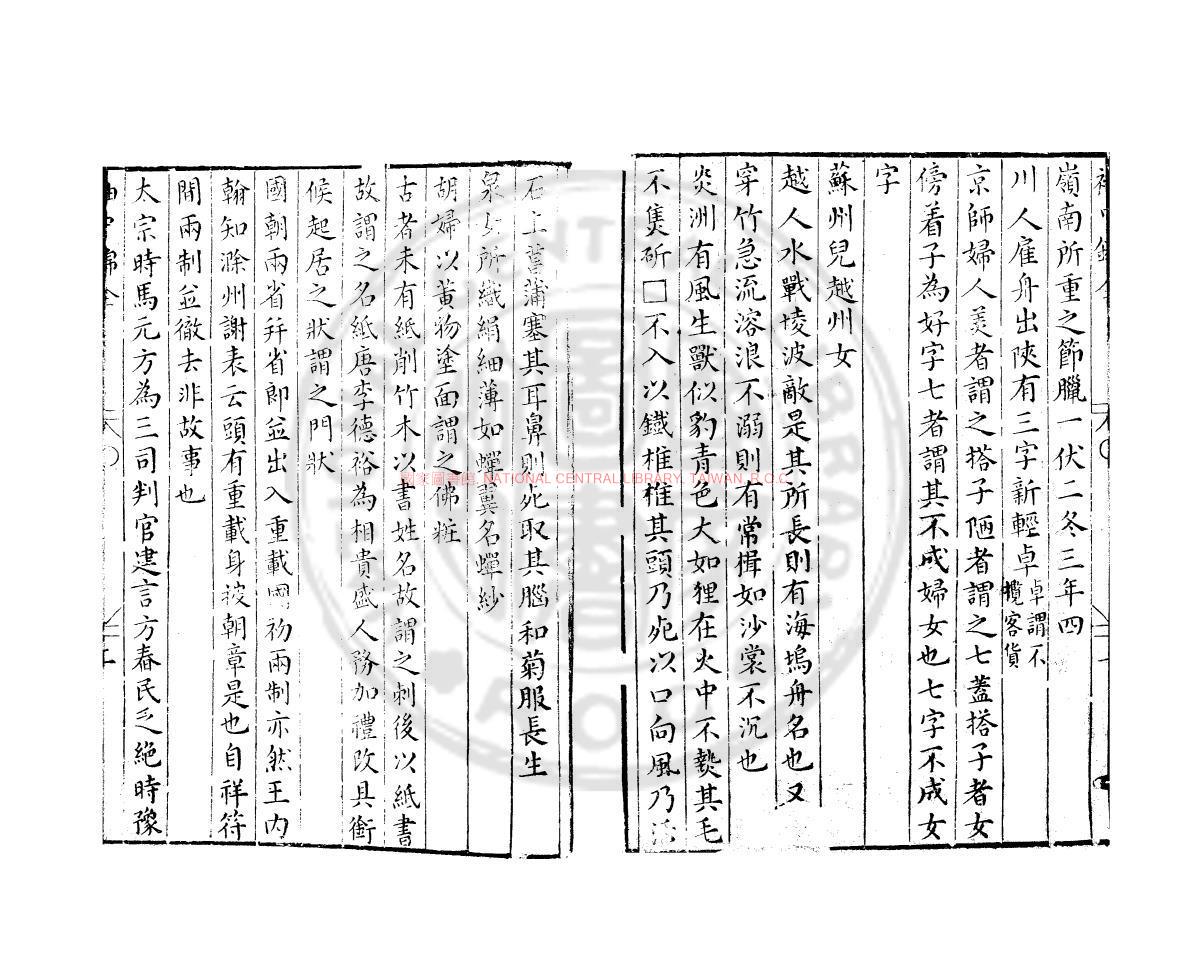 嶺南所重之節臘一伏二冬三年四
川人雇舟出陝有三字新輕卓卓謂不攬客貨
京師婦人美者謂之搭子陋者謂之七蓋搭子者女
傍着子為好字七者謂其不成婦女也七字不成女
字
蘇州兒越州女
越人水戰堎波敵是其所長則有海塢舟名也又
穿竹急流溶浪不溺則有常揖如沙裳不沉也
炎洲有風生獸似豹青色大如狸在火中不爇其毛
不焦斫□不入以鐵椎椎其頭乃死以口向風乃活
石上菖蒲塞其耳鼻則死取其腦和菊服長生
泉女所織絹細薄如蟬翼名蟬紗
胡婦以黃物塗面謂之佛粧
古者未有紙削竹木以書姓名故謂之刺後以紙書
故謂之名紙唐李德裕為相貴盛人務加禮改具銜
候起居之狀謂之門狀
國朝兩省幷省郎並出入重載國初兩制亦然王內
翰知滁州謝表云頭有重載身披朝章是也自祥符
間兩制並徹去非故事也
太宗時馬元方為三司判官建言方春民乏絕時豫
國家圖書館, NATIONAL CENTRAL LIBRARY, TAIWAN, R.O.C